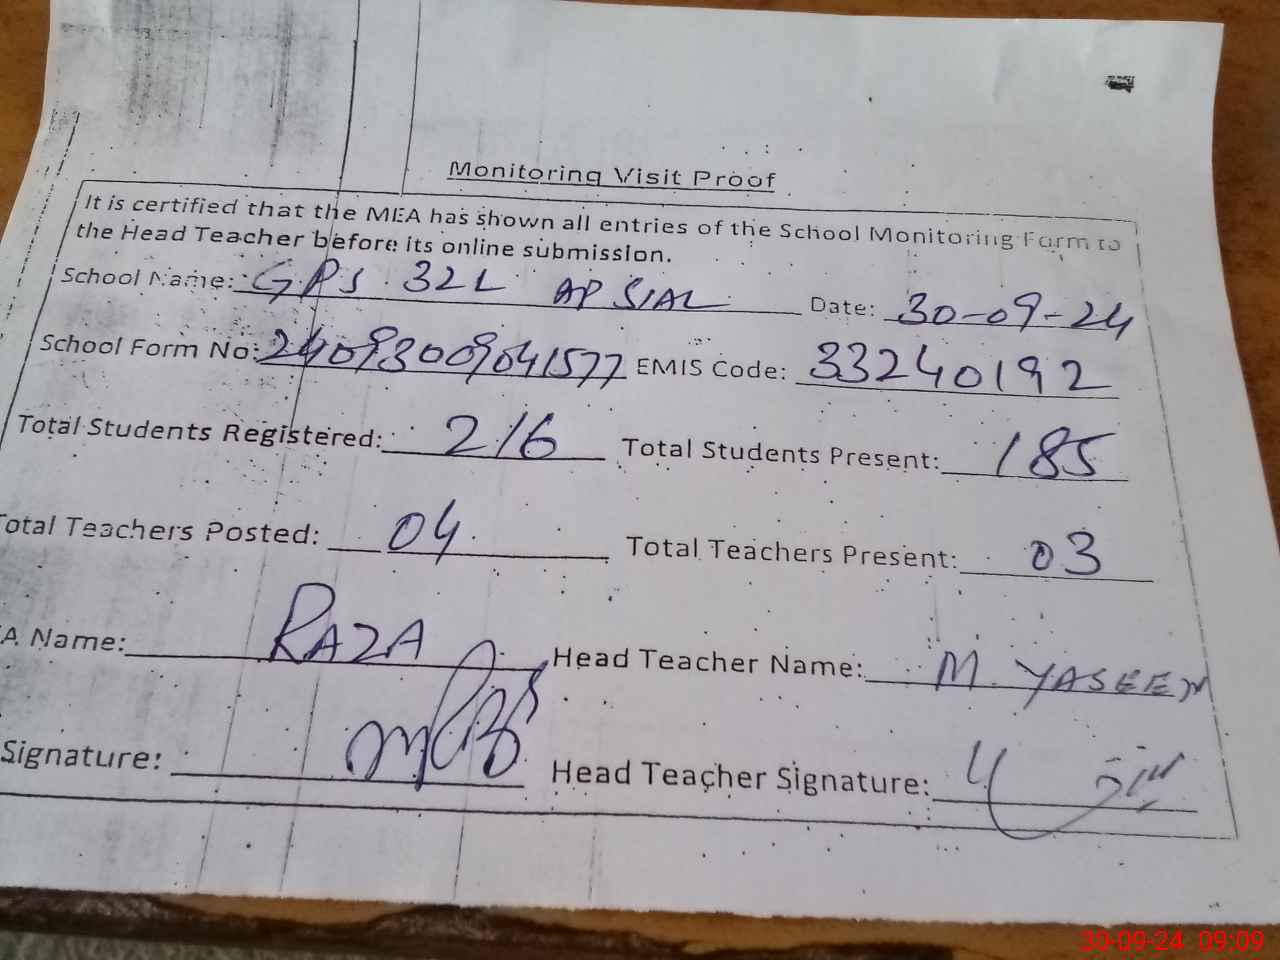 Monitoring Visit Proof
It is certified that the MEA has shown all entries of the School Monitoring Form to
the Head Teacher before its online submission.
School Name: GPS 32L AP SIAL Date: 30-09-24
School Form No: 24093009041577 EMIS Code: 33240192
Total Students Registered: 216 Total Students Present: 185
Total Teachers Posted: 04 Total Teachers Present: 03
A Name: RAZA Head Teacher Name: M. YASEEN
Signature: Head Teacher Signature:
30-09-24 09:09